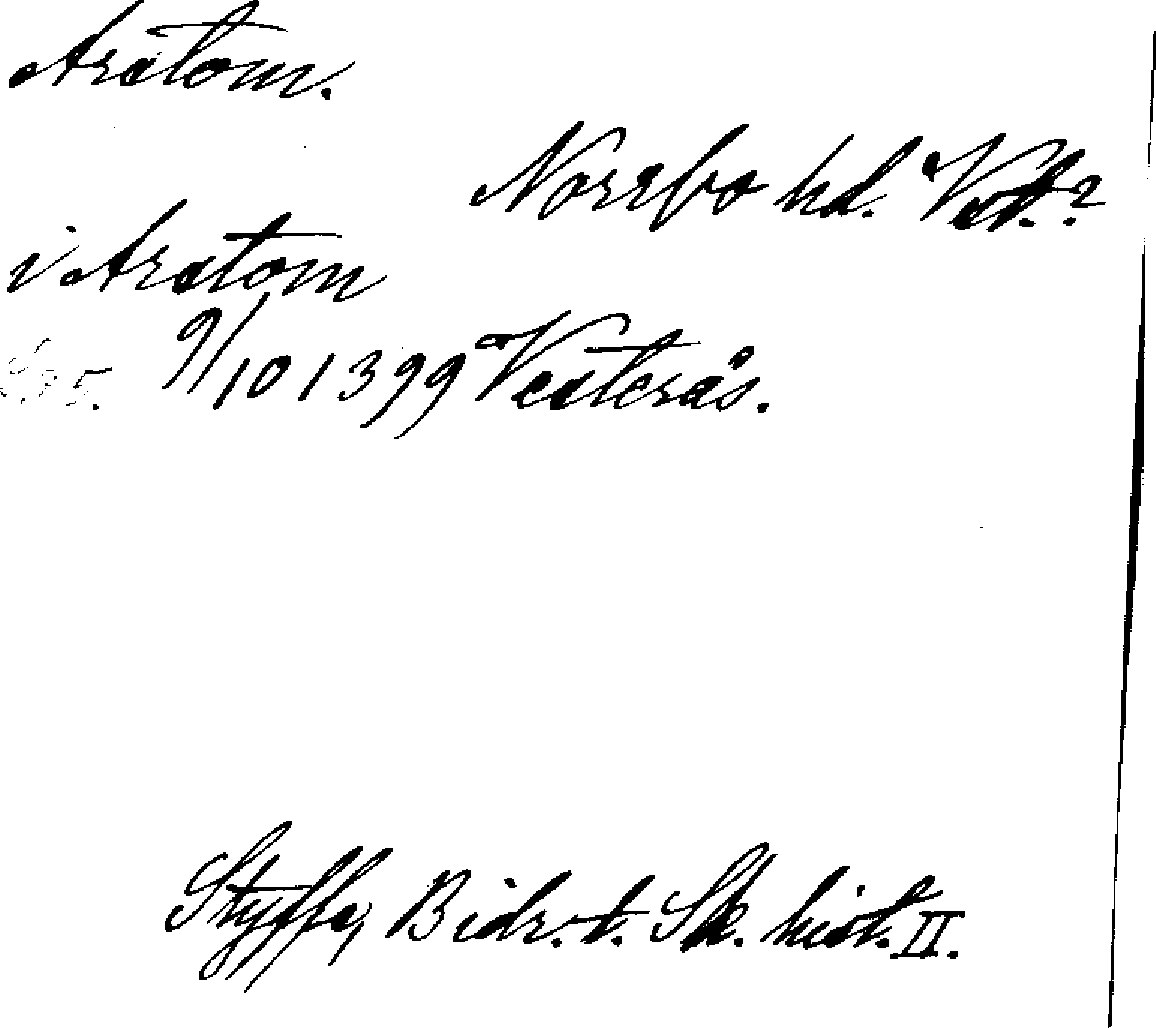 Aratom.
Norrbo hd. Vstl.?
i Aratom
9/10 1399 Vesterås.
Styffe, Bidr. t. Sk. hist. II.